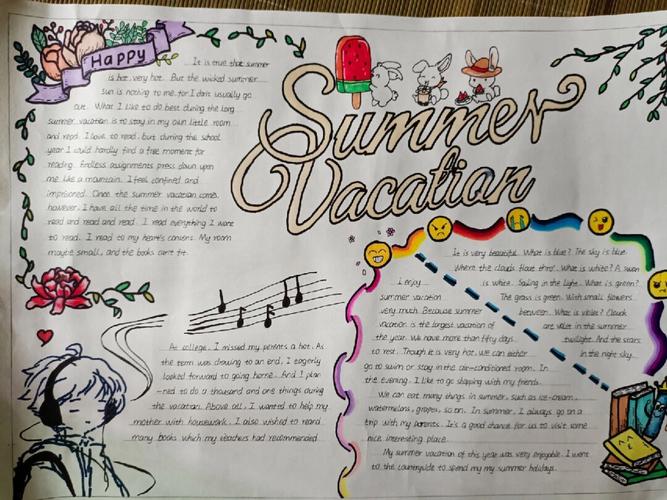 Happy
Summer
Vacation
It is true that summer
is hot, very hot. But the wicked summer
sun is nothing to me, for I don't usually go
out. What I like to do best during the long
summer vacation is to stay in my own little room
and read. I love to read, but during the school
year I would hardly find a free moment for
reading. Endless assignments press down upon
me like a mountain. I feel confined and
imprisoned. Once the summer vacation comes,
however, I have all the time in the world to
read and read and read. I read everything I want
to read. I read to my heart's content. My room
maybe small, and the books can't fit.
At college, I missed my parents a hot. As
the term was drawing to an end, I eagerly
looked forward to going home. And I plan
-ned to do a thousand and one things during
the vacation. Above all, I wanted to help my
mother with housework. I also wished to read
many books which my teachers had recommended.
It is very beautiful. What is blue? The sky is blue
Where the clouds float thro'. What is white? A swan
is white. Sailing in the light. What is green?
The grass is green. With small flowers
between. What is violet? Clouds
are violet in the summer
twilight. And the stars
in the night sky.
I enjoy
summer vacation
very much. Because summer
vacation is the largest vacation of
the year. We have more than fifty days
to rest. Though it is very hot, we can either
go to swim or stay in the air-conditioned room. In
the evening, I like to go shopping with my friends.
We can eat many things in summer, such as ice-cream,
watermelons, grapes, so on. In summer, I always go on a
trip with my parents. It's a good chance for us to visit some
nice interesting place.
My summer vacation of this year was very enjoyable. I went
to the countryside to spend my my summer holidays.